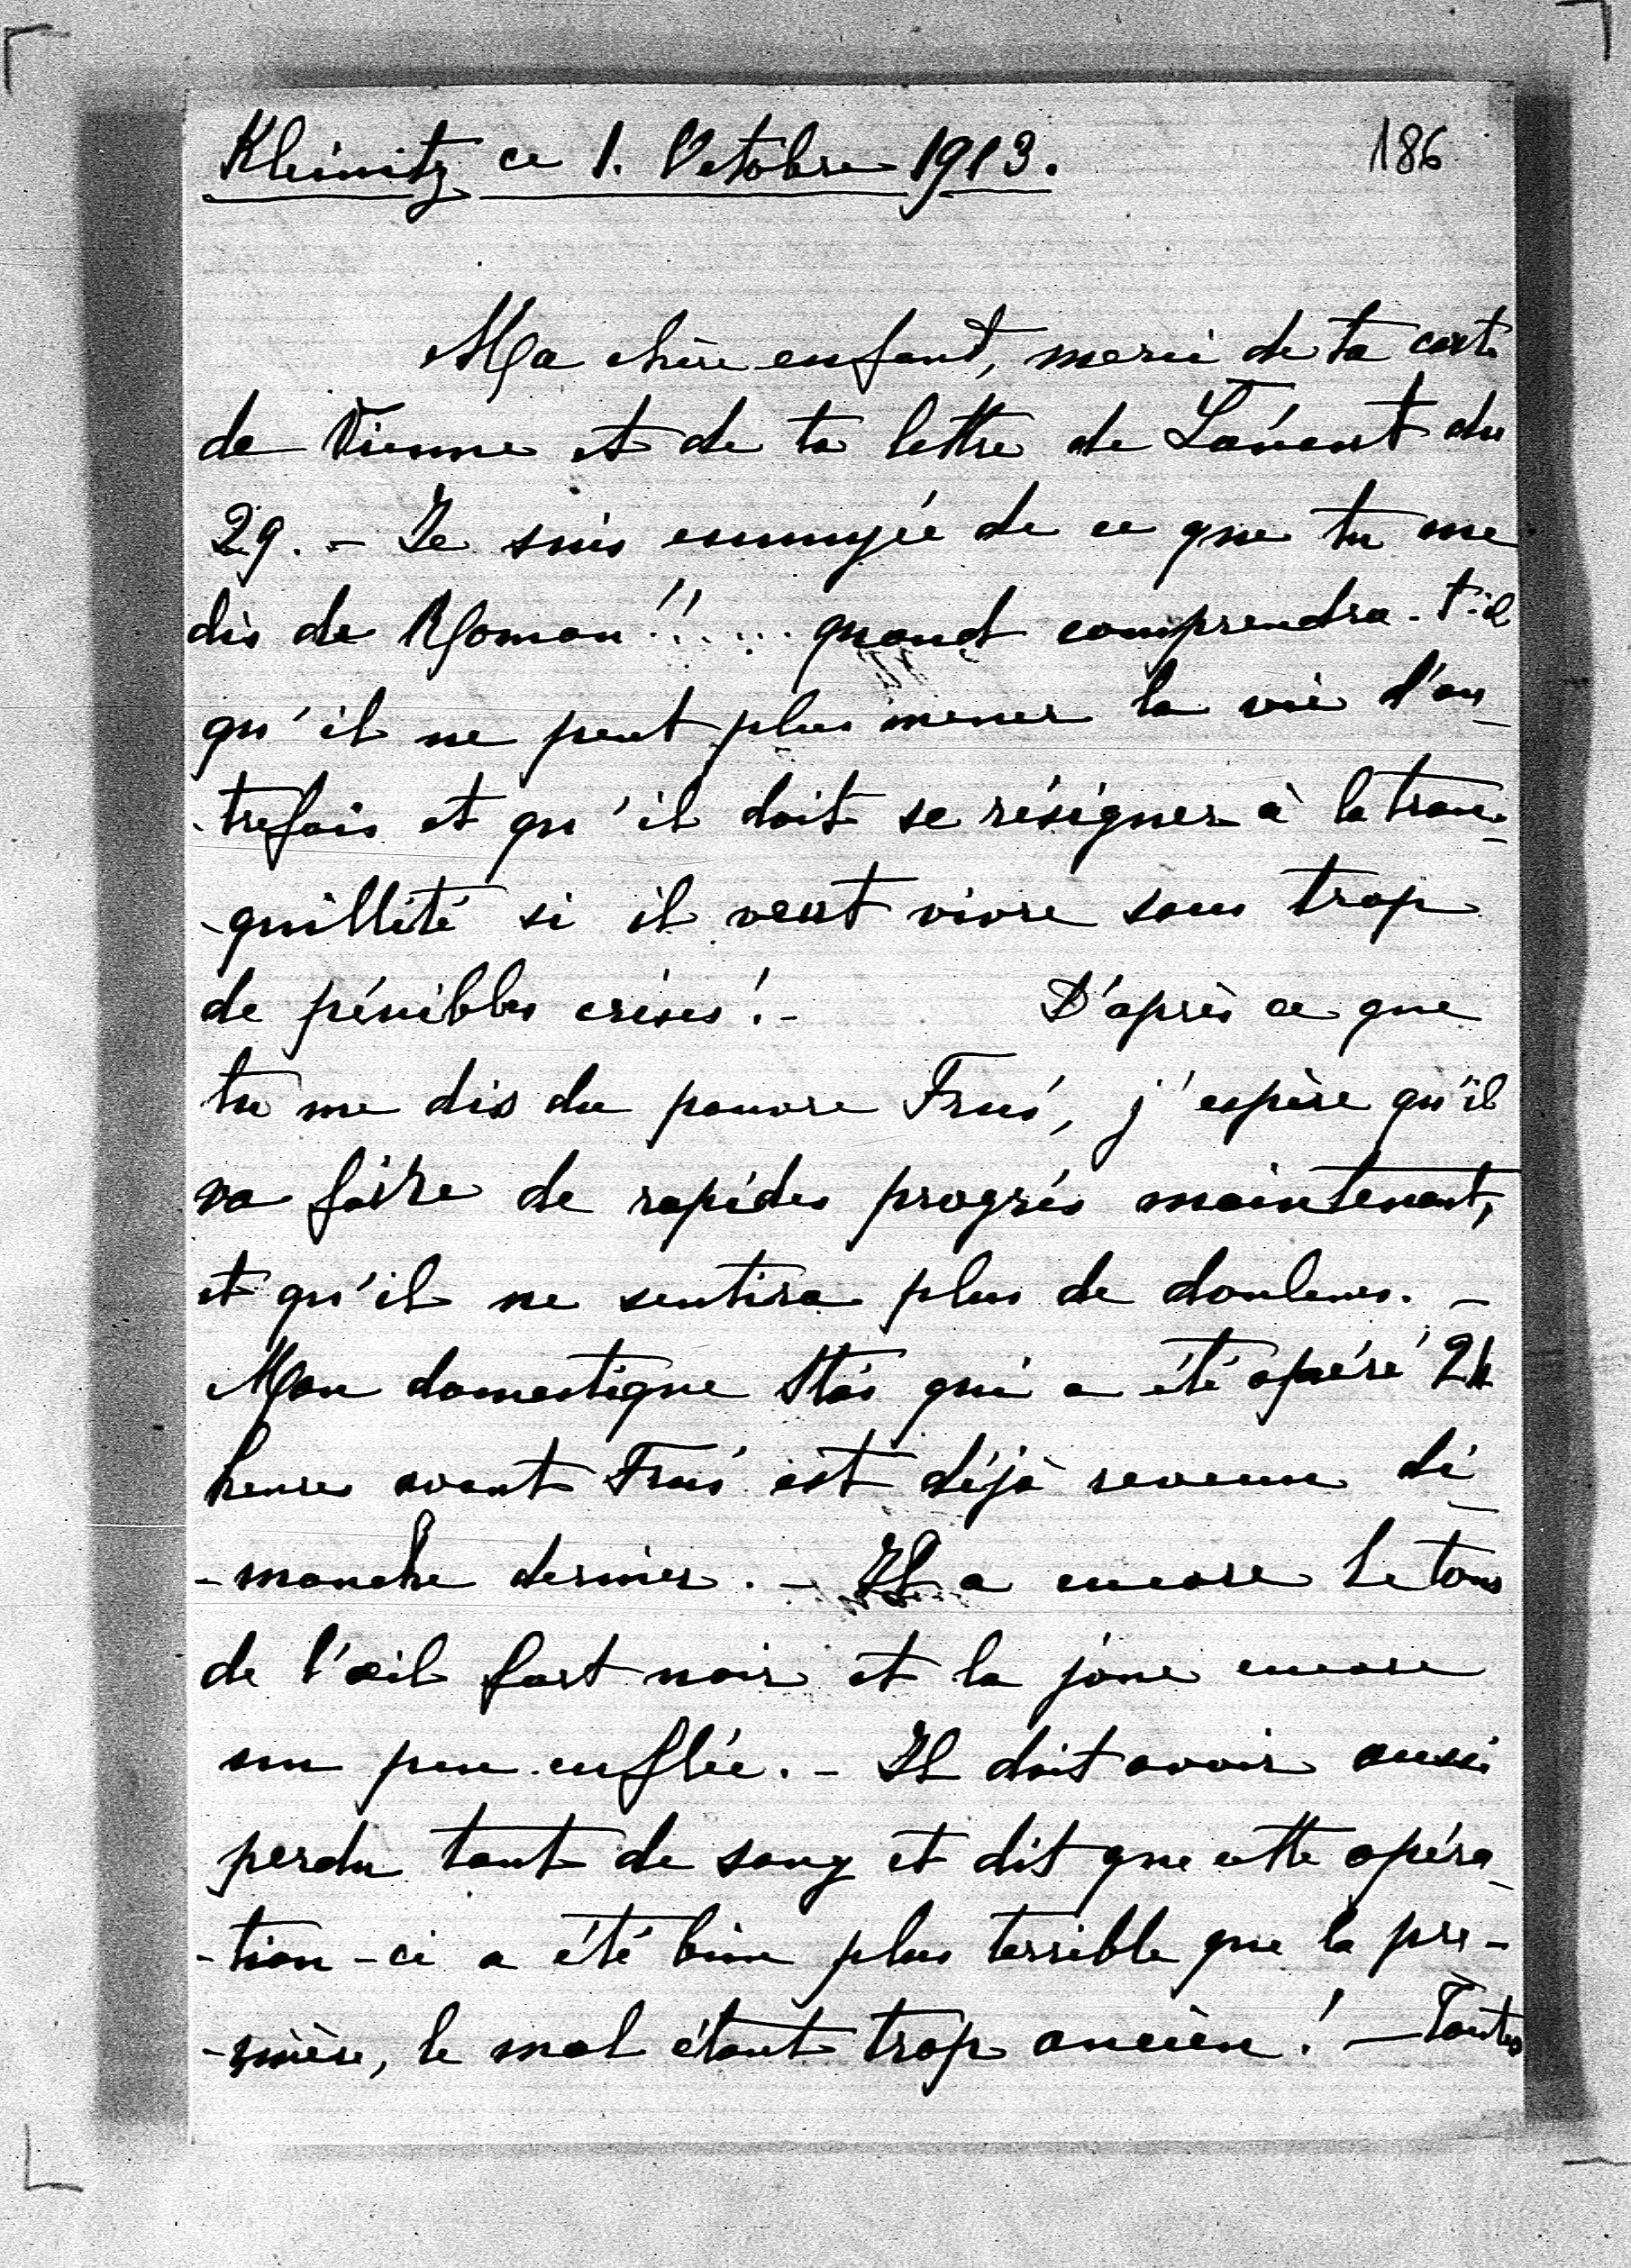 Kleinitz ce 1. Octobre 1913.
186
Ma chère enfant, merci de ta carte
de Vienne et de ta lettre de Łańcut du
29. - Je suis ennuyée de ce que tu me
dis de Roman!!..... quand comprendra-t-il
qu'il ne peut plus mener la vie d'au-
-trefois et qu'il doit se résigner à la tran-
-quillité si il veut vivre sans trop
de pénibles crises! - D'après ce que
tu me dis du pauvre Fruś, j'espère qu'il
va faire de rapides progrès maintenant,
et qu'il ne sentira plus de douleurs. -
Mon domestique Staś qui a été opéré 24
heures avant Fruś est déjà revenu di-
-manche dernier. - Il a encore le tour
de l'œil fort noir et la joue encore
un peu enflée. - Il doit avoir aussi
perdu tant de sang et dit que cette opéra-
-tion-ci a été bien plus terrible que la pre-
-mière, le mal étant trop ancien! - Toutes